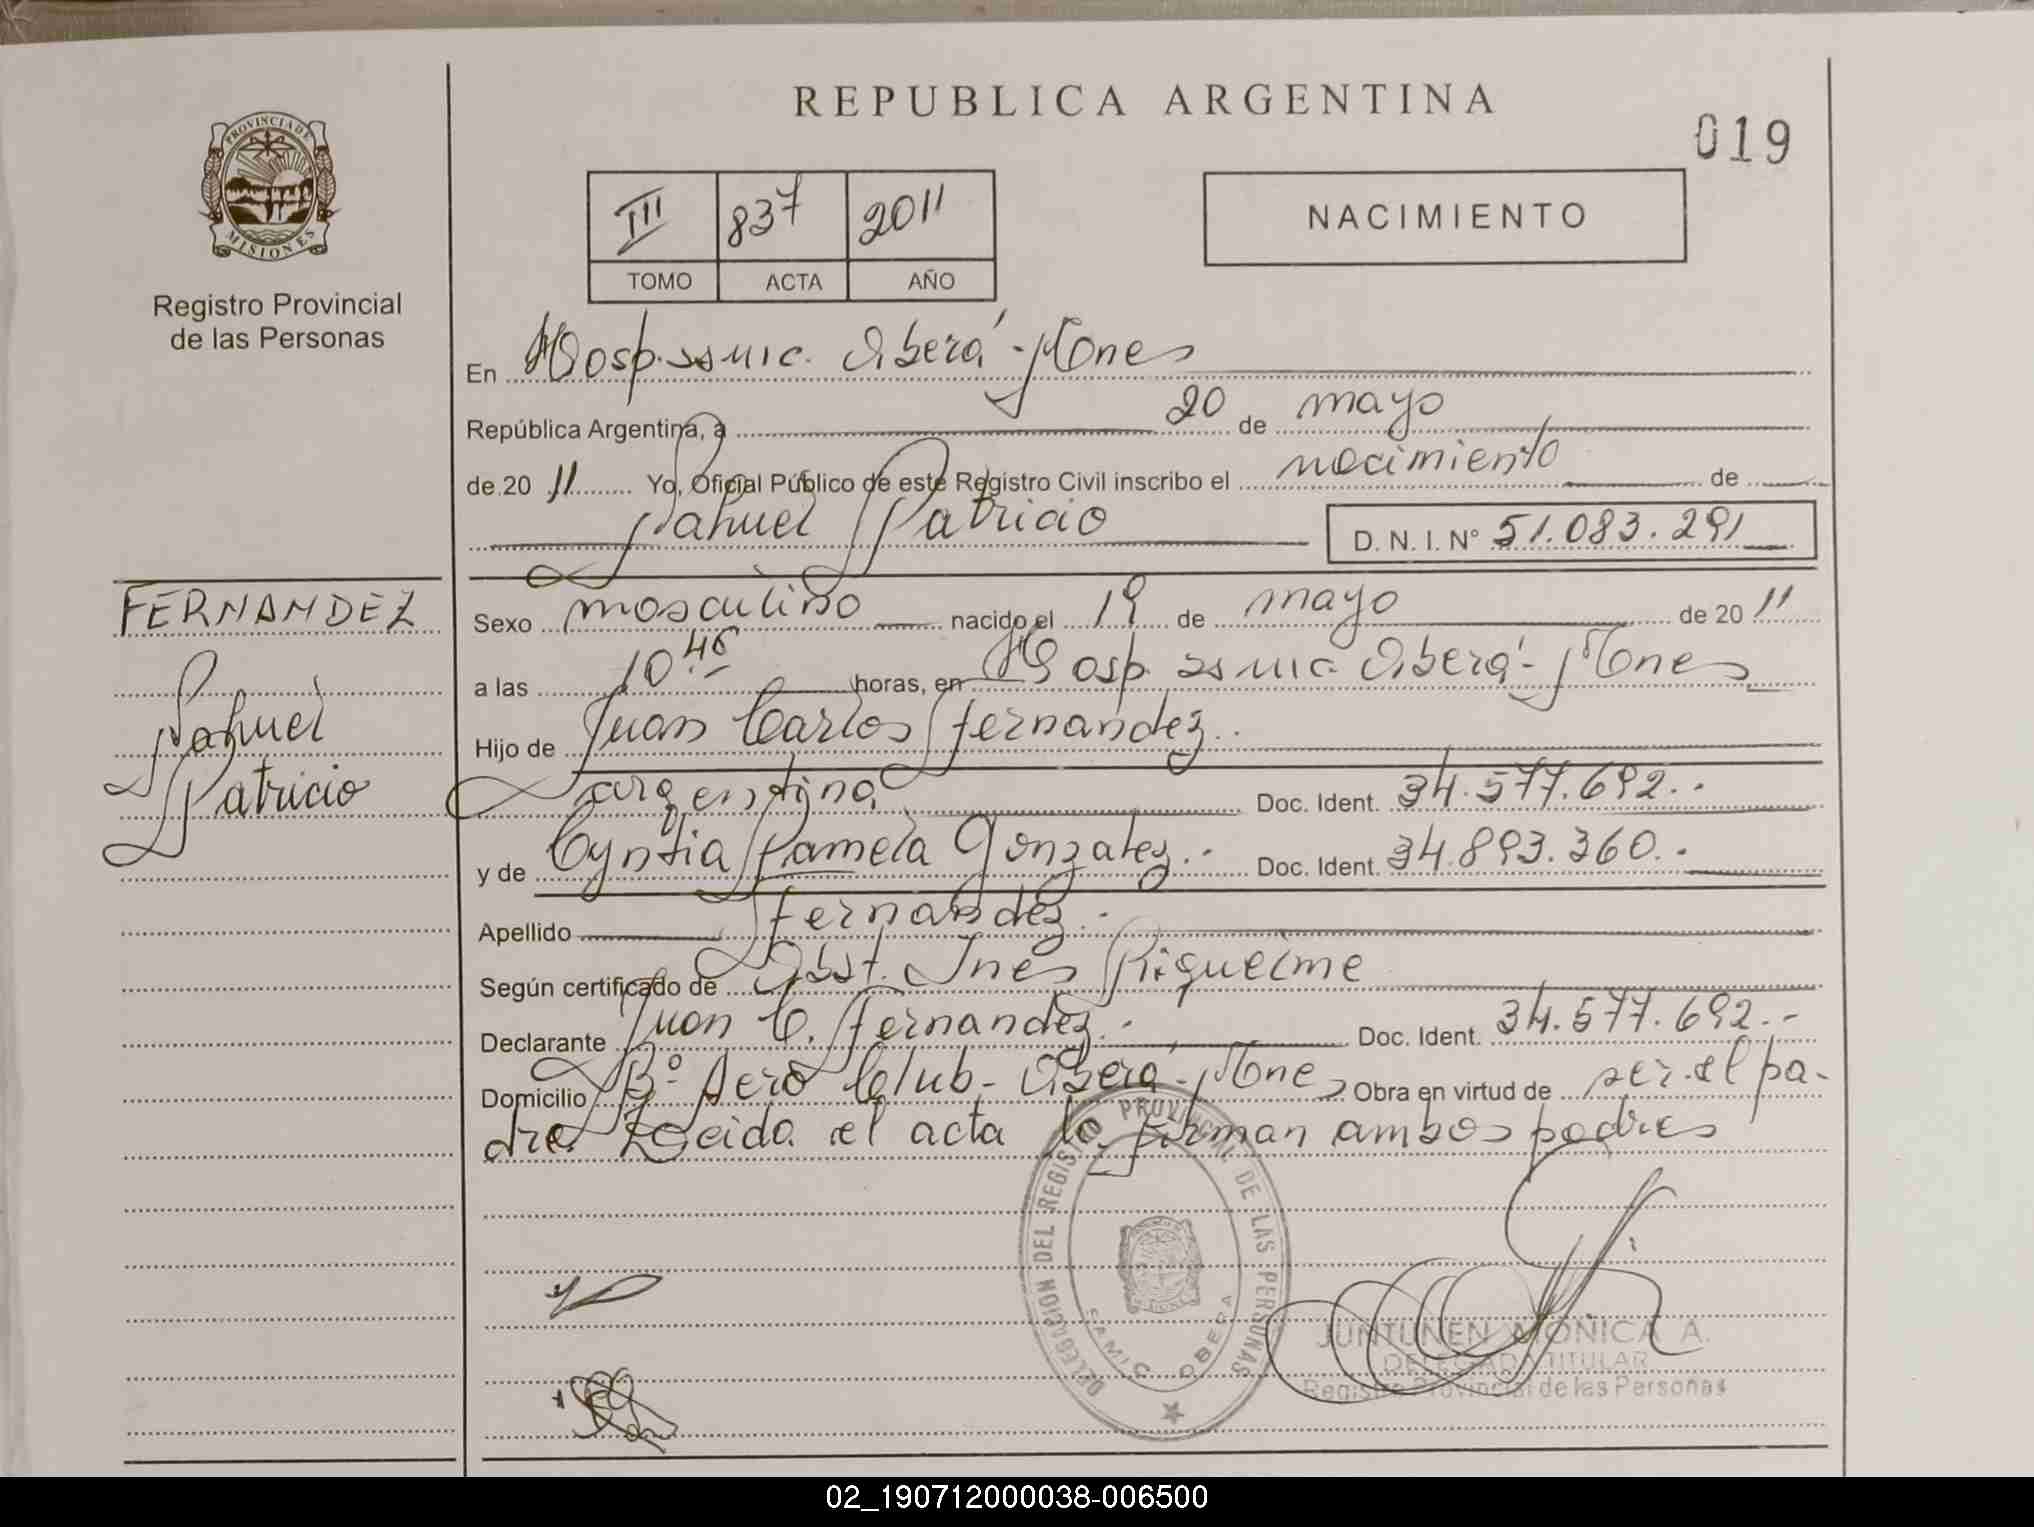 REPUBLICA ARGENTINA
019
PROVINCIA DE MISIONES
Registro Provincial
de las Personas
III 837 2011
TOMO ACTA AÑO
NACIMIENTO
En Hosp. SAMIC. Oberá - Mnes
República Argentina, a 20 de mayo
de 20 11 Yo, Oficial Público de este Registro Civil inscribo el nacimiento de
Nahuel Patricio D. N. I. N° 51.083.291
FERNANDEZ
Nahuel
Patricio
Sexo masculino nacido el 19 de mayo de 20 11
a las 10 horas, en Hosp. SAMIC Oberá - Mnes
Hijo de Juan Carlos Fernández.-
argentina Doc. Ident. 34.577.692.-
y de Cyntia Pamela Gonzalez.- Doc. Ident. 34.893.360.-
Apellido Fernández.-
Según certificado de Obst. Ines Riquelme
Declarante Juan C. Fernandez.- Doc. Ident. 34.577.692.-
Domicilio B° Aero Club - Oberá - Mnes Obra en virtud de ser el pa-
dre. Leida el acta la firman ambos padres
DELEGACION DEL REGISTRO PROVINCIAL DE LAS PERSONAS
SAMIC OBERA
JUNTUNEN MONICA A.
DELEGADA TITULAR
Registro Provincial de las Personas
02_190712000038-006500